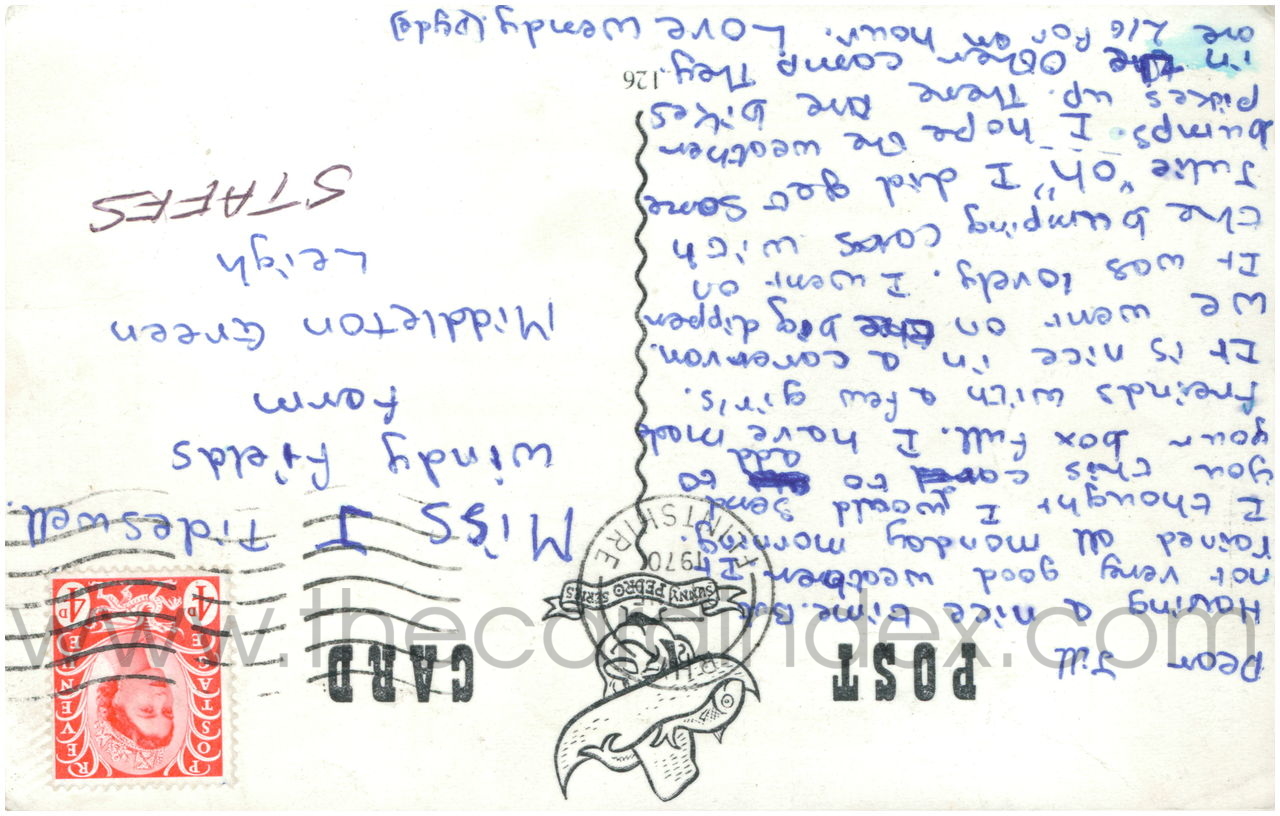 POST CARD
SUNNY PEDRO SERIES
1970
FLINTSHIRE
POSTAGE REVENUE
4D 4D
Dear Jill
Having a nice time. But
not very good weather. It
rained all monday morning.
I thought I would send
you this card to add to
your box full. I have made
freinds with a few girls.
It is nice in a caravan.
We went on the big dipper
It was lovely. I went on
the bumping cars with
Julie "oh" I did get some
bumps. I hope the weather
pikes up. There are bikes
in the other camp They
are 2/6 for an hour. Love Wendy (pgde)
126
Miss J Tideswell.
Windy Fields
Farm
Middleton Green
Leigh
STAFFS
www.thecardindex.com